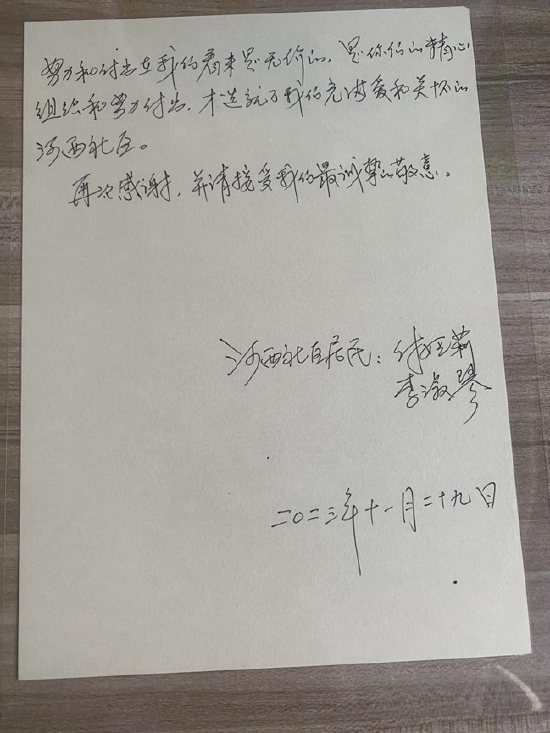 努力和付出在我们看来是无价的，是你们的精心
组织和努力付出，才造就了我们充满爱和关怀的
河西社区。
再次感谢，并请接受我们最诚挚的敬意。
河西社区居民：付亚莉
李淑琴
二〇二三年十一月二十九日